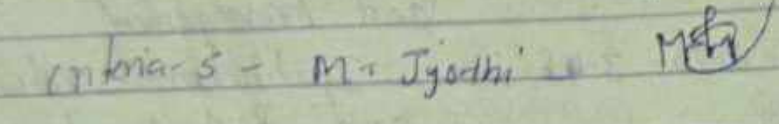 Criteria-5 - M. Jyothi